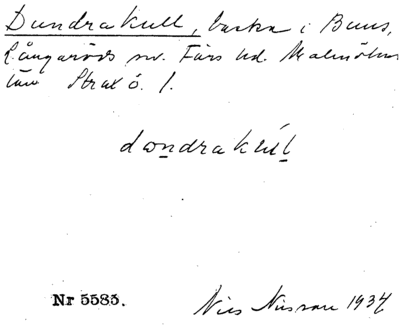 Dundrakull, backe i Buus,
Långaröds sn. Färs hd. Malmöhus
län Strax ö. l.
dωndrakúl
Nr 5585.
Nils Nilsson 1934